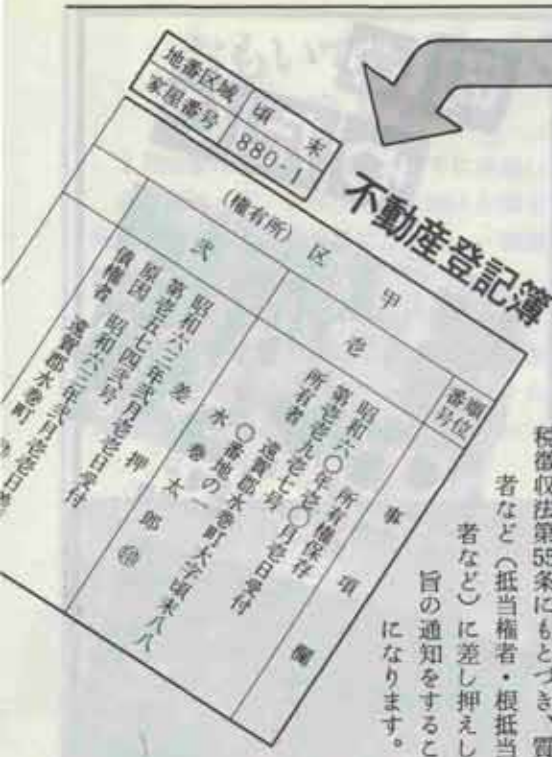 地番区域 頃末
家屋番号 880-1
不動産登記簿
甲区(所有権)
順位番号
事項欄
壱
所有権保存
昭和六〇年壱〇月壱日受付
第壱壱九壱七号
所有者 遠賀郡水巻町大字頃末八八
〇番地の一
水巻太郎 ㊞
弐
差押
昭和六三年弐月壱壱日受付
第壱五七四弐号
原因 昭和六三年弐月壱壱日差
債権者 遠賀郡水巻町
税徴収法第55条にもとづき、質
者など(抵当権者・根抵当
者など)に差し押えし
旨の通知をするこ
になります。